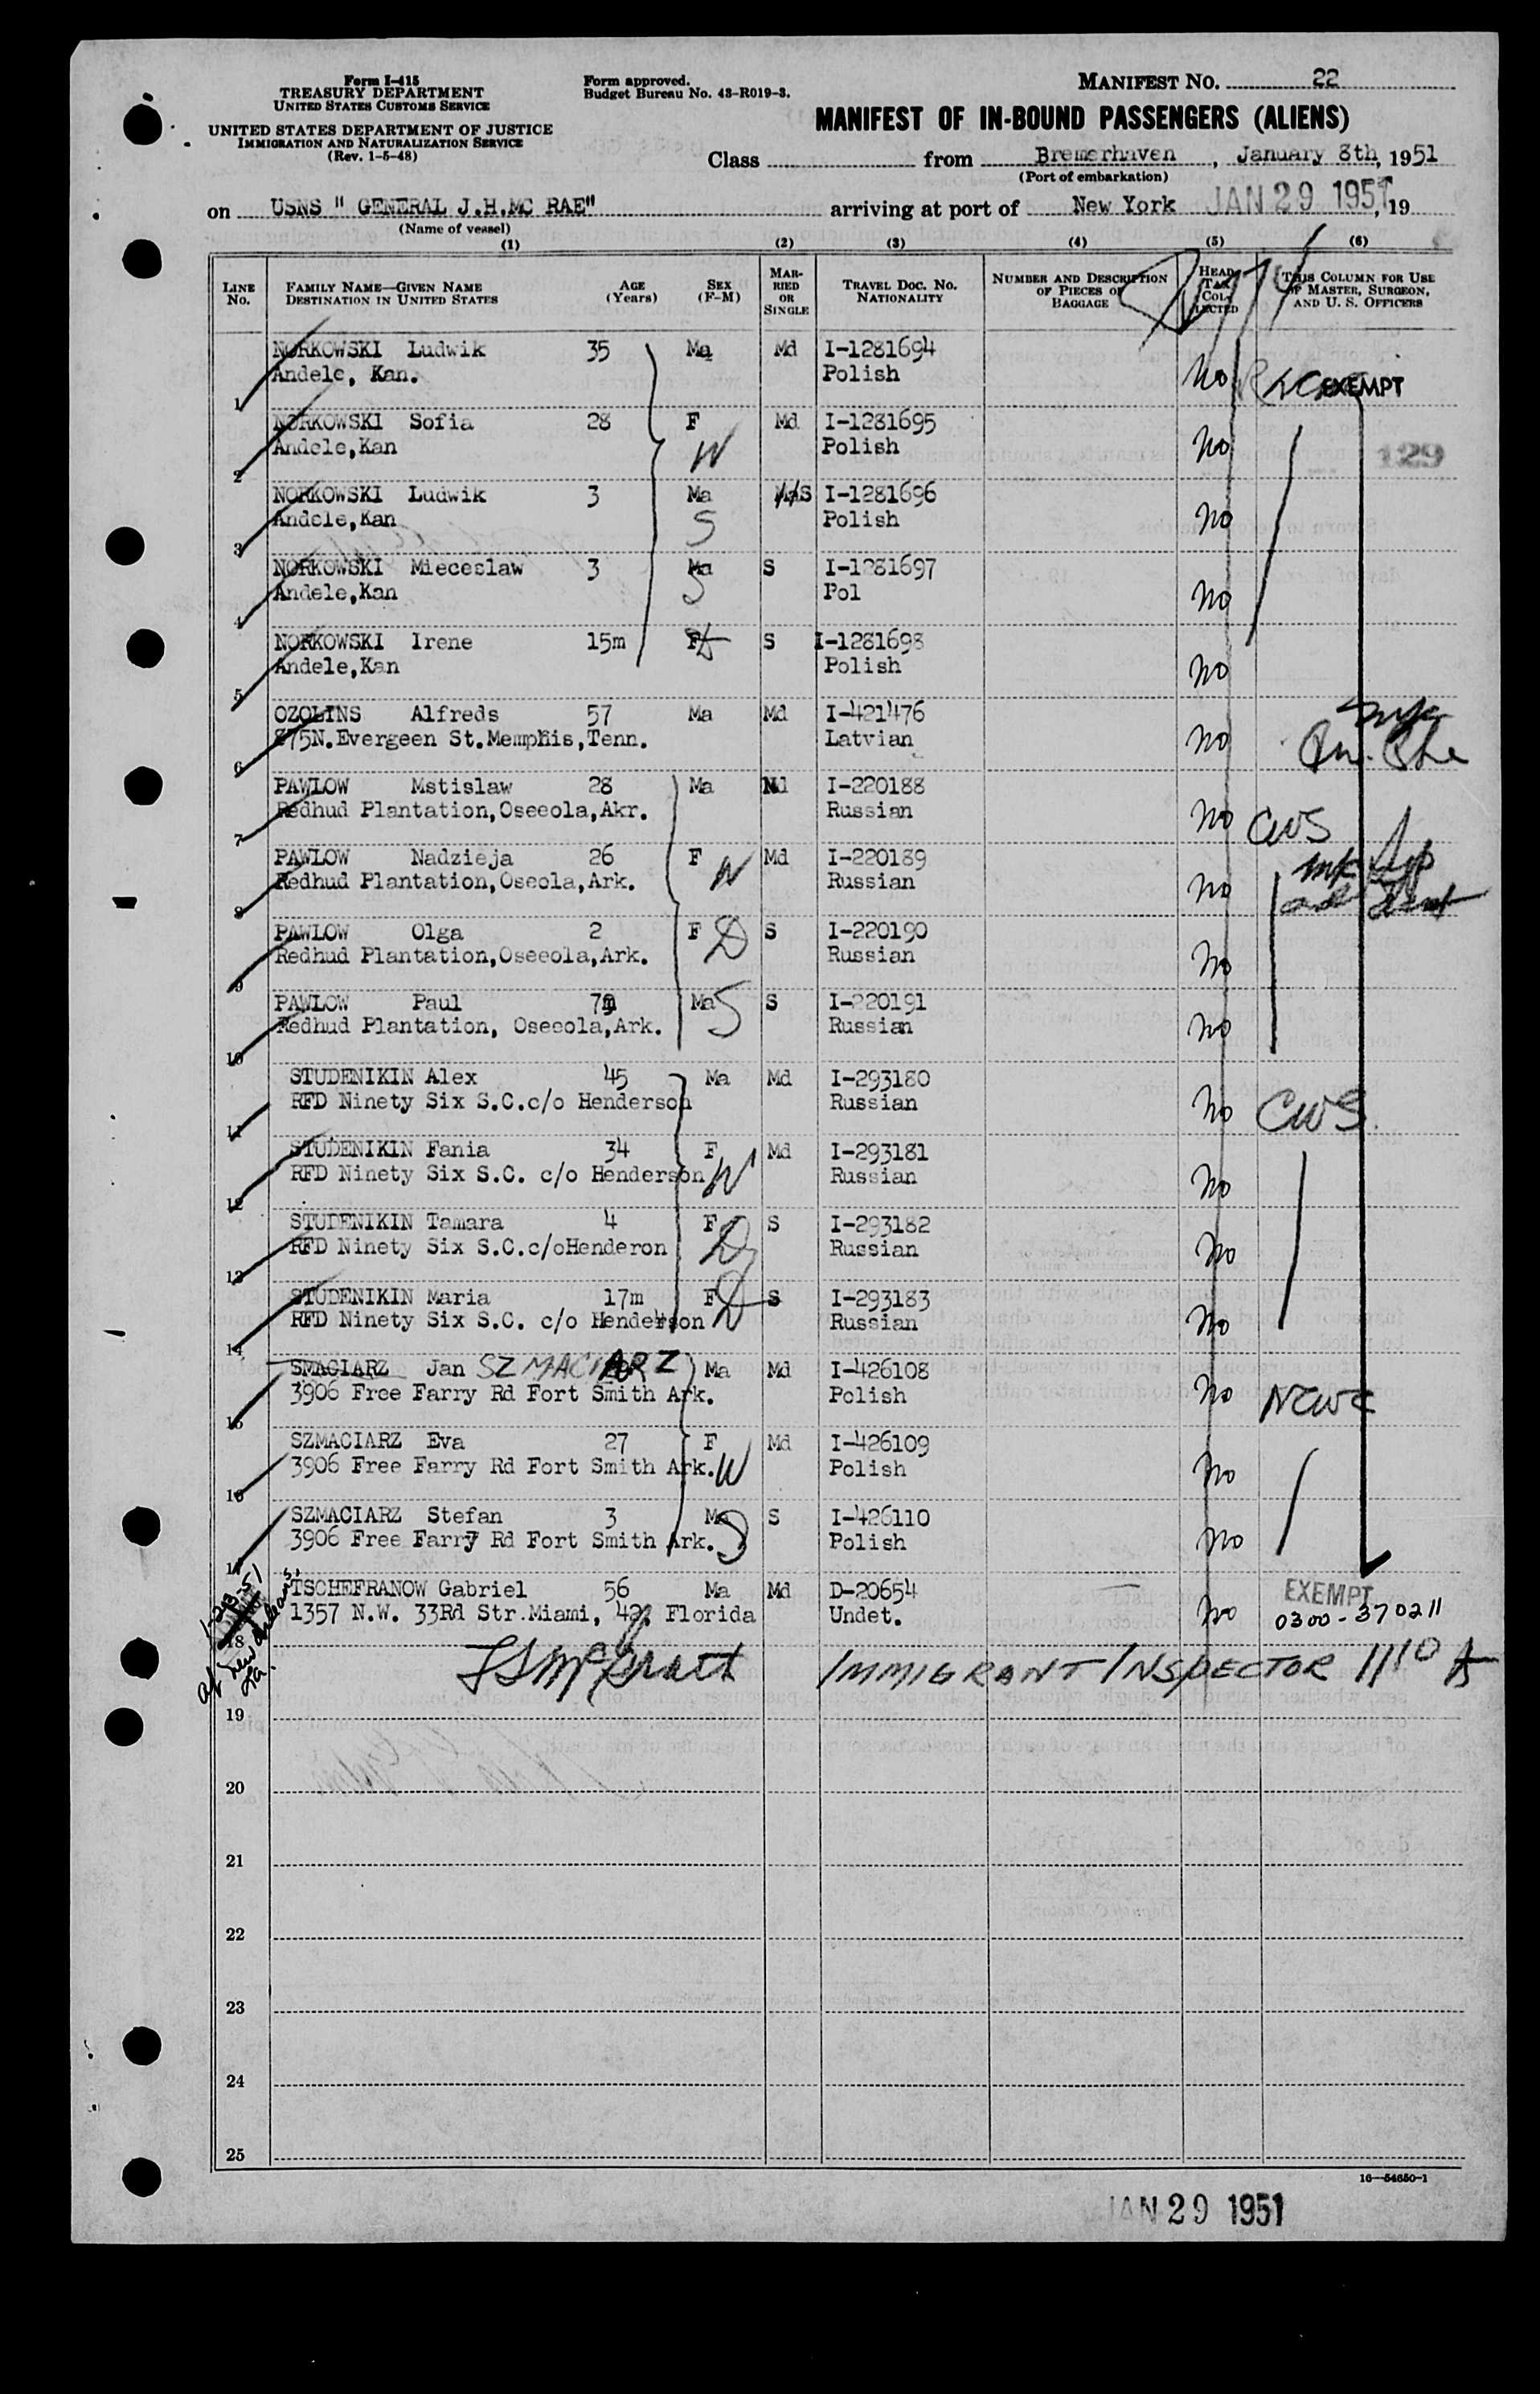 Form I-415
TREASURY DEPARTMENT
UNITED STATES CUSTOMS SERVICE
UNITED STATES DEPARTMENT OF JUSTICE
IMMIGRATION AND NATURALIZATION SERVICE
(Rev. 1-5-48)
Form approved.
Budget Bureau No. 43-R019-3.
MANIFEST NO. 22
MANIFEST OF IN-BOUND PASSENGERS (ALIENS)
Class from Bremerhaven, January 8th, 1951
(Port of embarkation)
on USNS " GENERAL J.H.MC RAE" arriving at port of New York JAN 29 1951, 19
(Name of vessel)
(1) (2) (3) (4) (5) (6)
LINE No. FAMILY NAME—GIVEN NAME DESTINATION IN UNITED STATES AGE (Years) SEX (F-M) MARRIED OR SINGLE TRAVEL DOC. NO. NATIONALITY NUMBER AND DESCRIPTION OF PIECES OF BAGGAGE HEAD TAX COLLECTED THIS COLUMN FOR USE OF MASTER, SURGEON, AND U. S. OFFICERS
NORKOWSKI Ludwik 35 Ma Md I-1281694
Andele, Kan. Polish No EXEMPT
1
NORKOWSKI Sofia 28 F Md I-1281695
Andele,Kan W Polish No 129
2
NORKOWSKI Ludwik 3 Ma S I-1281696
Andele,Kan S Polish No
3
NORKOWSKI Mieceslaw 3 Ma S I-1281697
Andele,Kan S Pol No
4
NORKOWSKI Irene 15m F D S I-1281698
Andele,Kan Polish No
5
OZOLINS Alfreds 57 Ma Md I-421476
875N.Evergeen St.Memphis,Tenn. Latvian No
6
PAWLOW Mstislaw 28 Ma Md I-220188
Redhud Plantation,Oseeola,Akr. Russian No CWS
7
PAWLOW Nadzieja 26 F W Md I-220189
Redhud Plantation,Oseola,Ark. Russian No
8
PAWLOW Olga 2 F D S I-220190
Redhud Plantation,Oseeola,Ark. Russian No
9
PAWLOW Paul 7m Ma S S I-220191
Redhud Plantation, Oseeola,Ark. Russian No
10
STUDENIKIN Alex 45 Ma Md I-293180
RFD Ninety Six S.C.c/o Henderson Russian No CWS
11
STUDENIKIN Fania 34 F Md I-293181
RFD Ninety Six S.C. c/o Henderson W Russian No
12
STUDENIKIN Tamara 4 F S I-293182
RFD Ninety Six S.C.c/oHenderon D Russian No
13
STUDENIKIN Maria 17m F D S I-293183
RFD Ninety Six S.C. c/o Henderson Russian No
14
SMACIARZ Jan SZMACIARZ Ma Md I-426108
3906 Free Farry Rd Fort Smith Ark. Polish No NCWC
15
SZMACIARZ Eva 27 F Md I-426109
3906 Free Farry Rd Fort Smith Ark. W Polish No
16
SZMACIARZ Stefan 3 Ma S I-426110
3906 Free Farry Rd Fort Smith Ark. S Polish No
17
TSCHEFRANOW Gabriel 56 Ma Md D-20654 EXEMPT
1357 N.W. 33Rd Str.Miami, 42, Florida Undet. No 0300-370211
18
1-23-51
at New Orleans, La.
IMMIGRANT INSPECTOR 1110 A
19
20
21
22
23
24
25
16—54650-1
JAN 29 1951